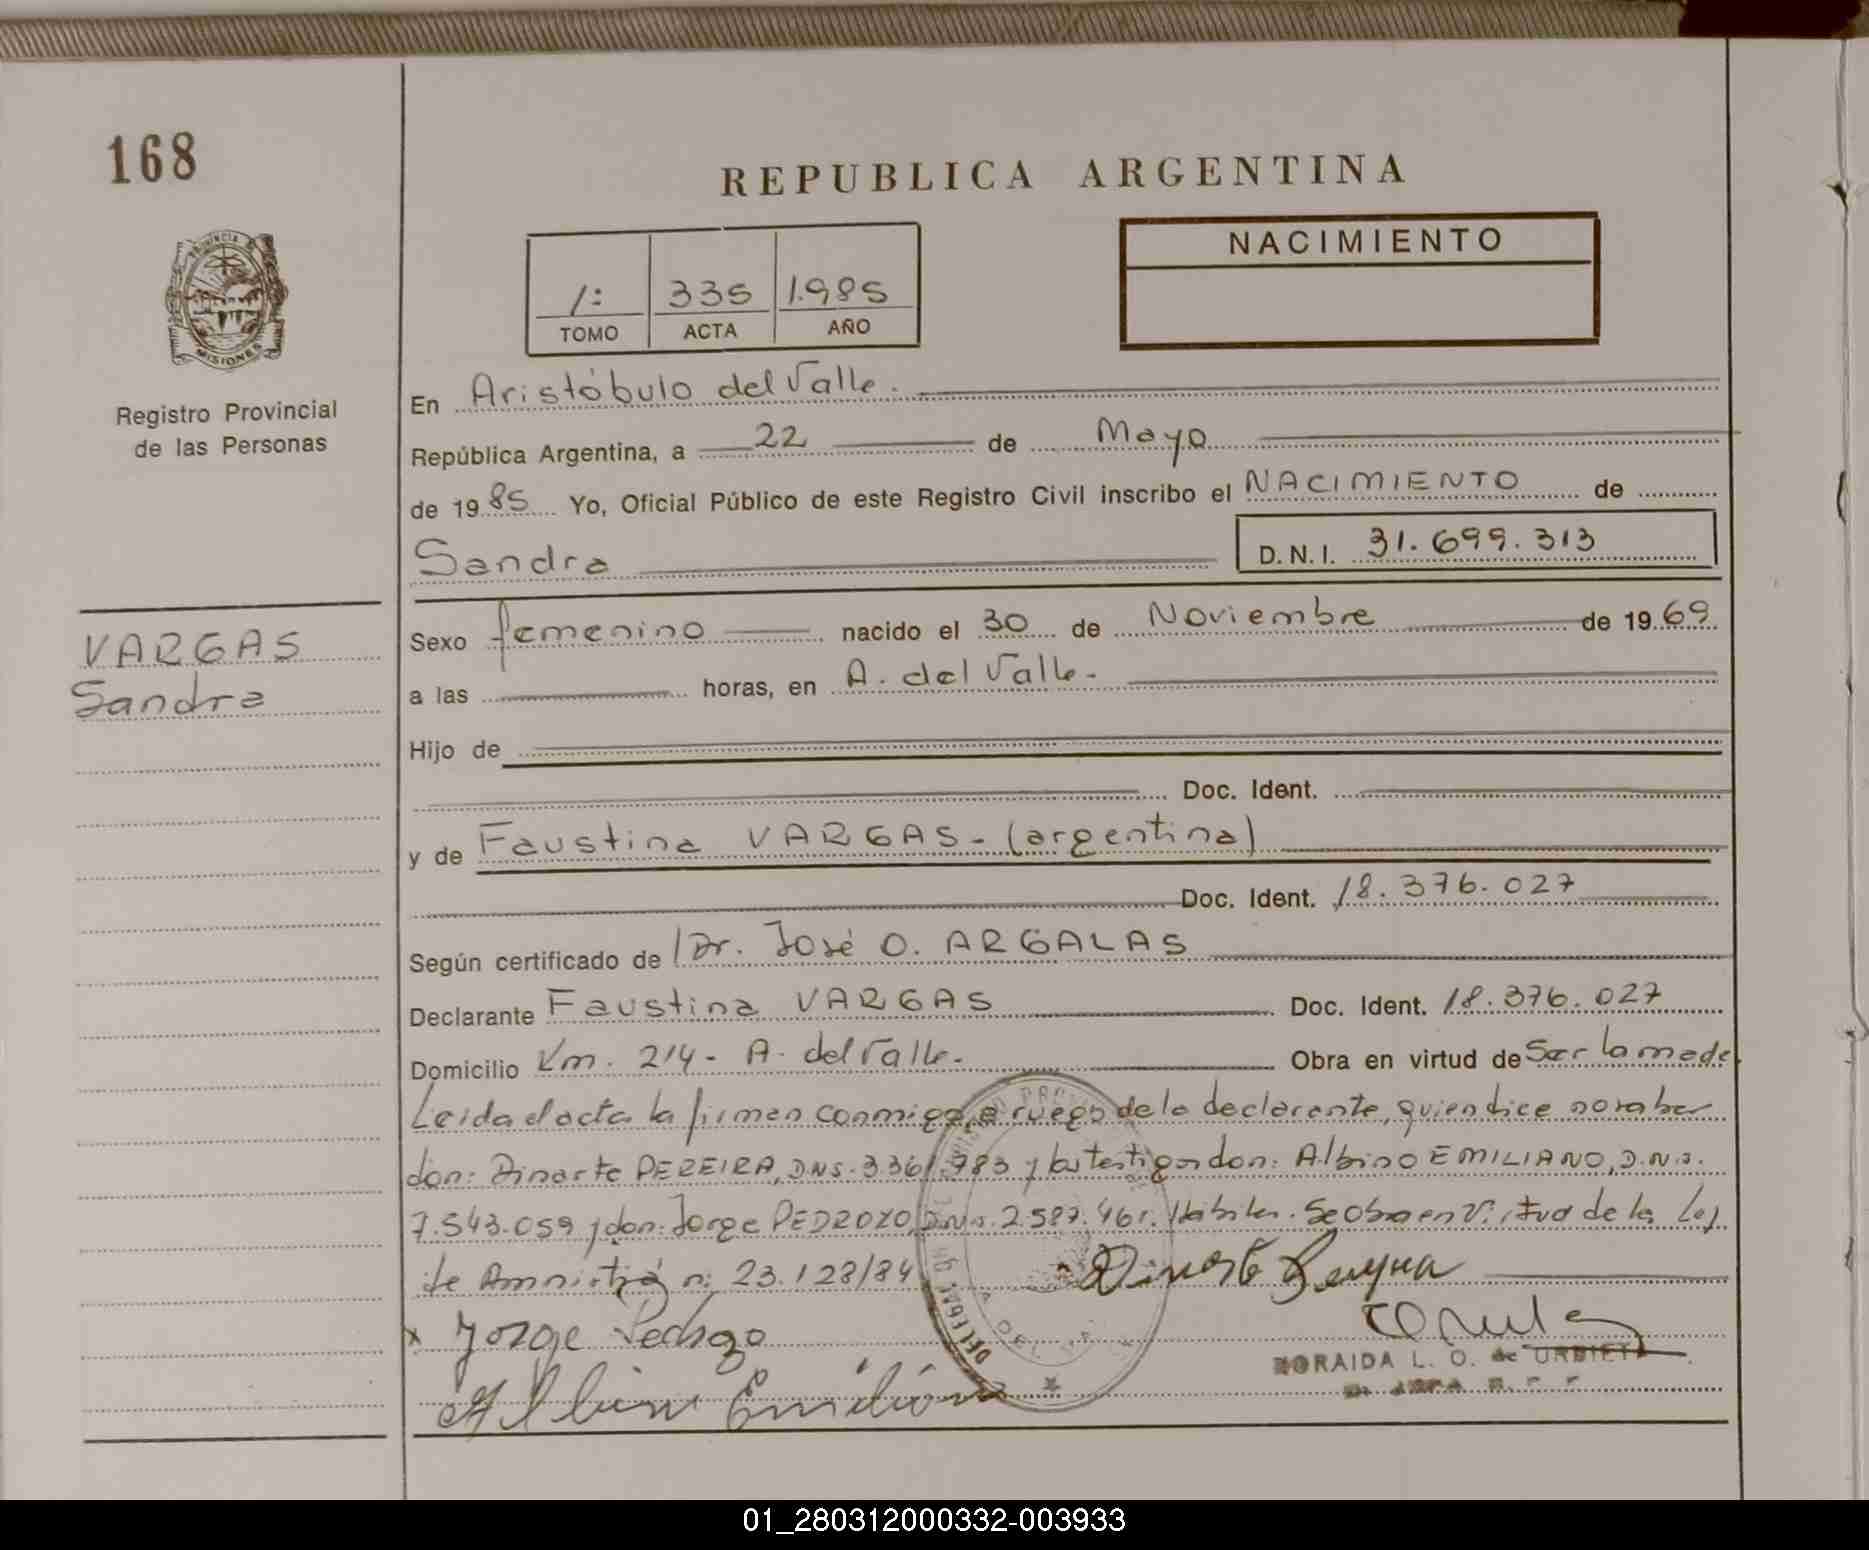 168
REPUBLICA ARGENTINA
PROVINCIA DE
MISIONES
Registro Provincial
de las Personas
1: 335 1.985
TOMO ACTA AÑO
NACIMIENTO
En Aristóbulo del Valle.
República Argentina, a 22 de Mayo
de 1985 Yo, Oficial Público de este Registro Civil inscribo el NACIMIENTO de
Sandra D.N.I. 31.699.313
VARGAS
Sandra
Sexo femenino nacido el 30 de Noviembre de 1969
a las horas, en A. del Valle.
Hijo de
Doc. Ident.
y de Faustina VARGAS - (argentina)
Doc. Ident. 18.376.027
Según certificado de Dr. José O. ARGALAS
Declarante Faustina VARGAS Doc. Ident. 18.376.027
Domicilio Km. 214 - A. del Valle. Obra en virtud de Ser la madre
Leida el acta la firman conmigo, a ruego de la declarente, quien dice no saber
don: Dinarte PEREIRA, D.N.I. 3.361.783 y los testigos don: Albino EMILIANO, D.N.I.
7.543.059 y don: Jorge PEDROZO, D.N.I. 2.587.461. Hábiles. Se obra en Virtud de la Ley
de Amnistía n: 23.128/84
Jorge Pedrozo
Albino Emiliano
ZORAIDA L. O. de URBIETA
01_280312000332-003933